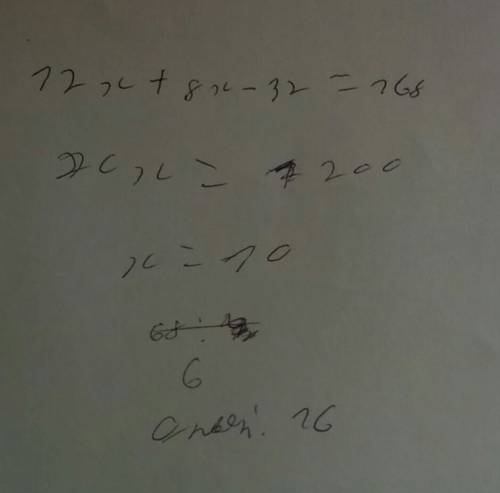 12x + 8x - 32 = 168
20x = 200
x = 10
68 :
6
16